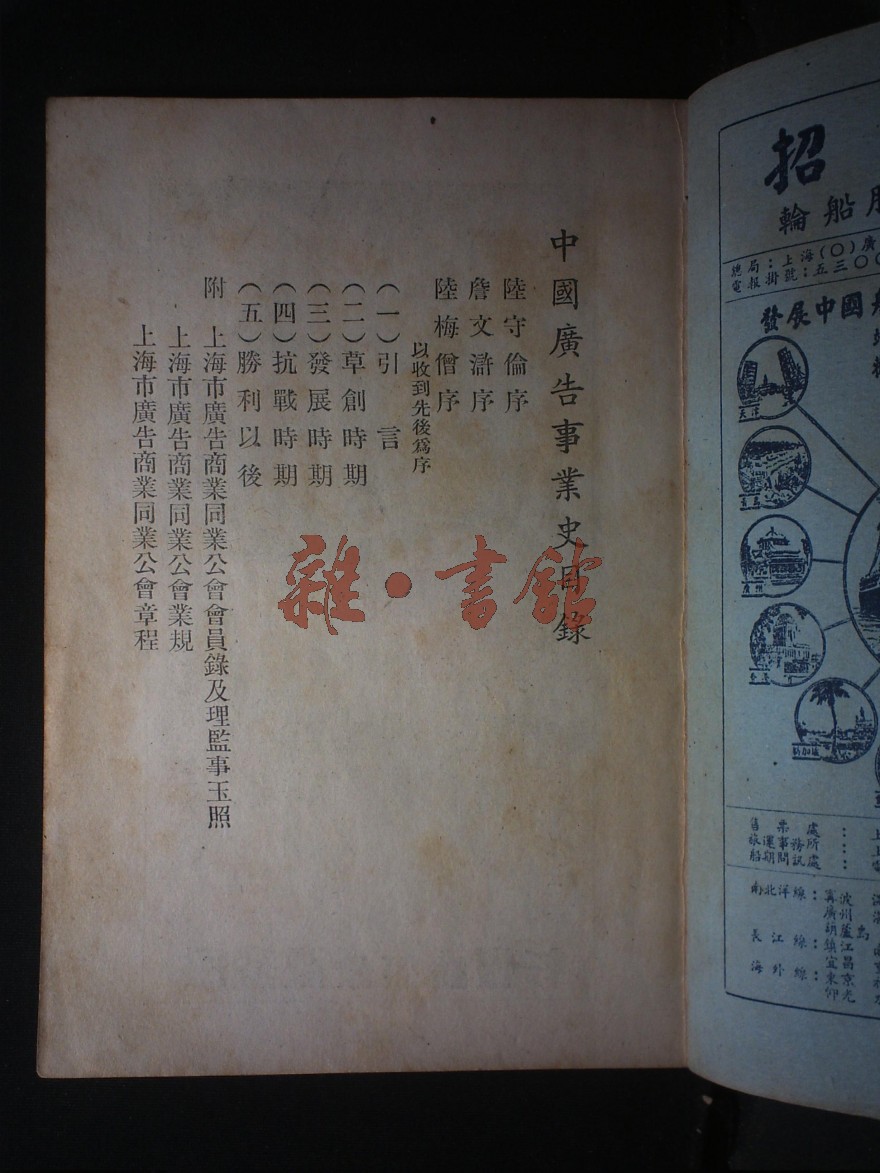 中國廣告事業史目錄
陸守倫序
詹文滸序
陸梅僧序
以收到先後爲序
（一）引言
（二）草創時期
（三）發展時期
（四）抗戰時期
（五）勝利以後
附 上海市廣告商業同業公會會員錄及理監事玉照
上海市廣告商業同業公會業規
上海市廣告商業同業公會章程
雜·書館
招
輪船
總局：上海（〇）廣
電報掛號：五三〇〇
發展中國
天津
青島
廣州
新加坡
售票處：上
旅運事務所：上
船期問訊處：
南北洋線：寧波
廣州
葫蘆島
長江線：鎮江
宜昌
海外線：東京
仰光